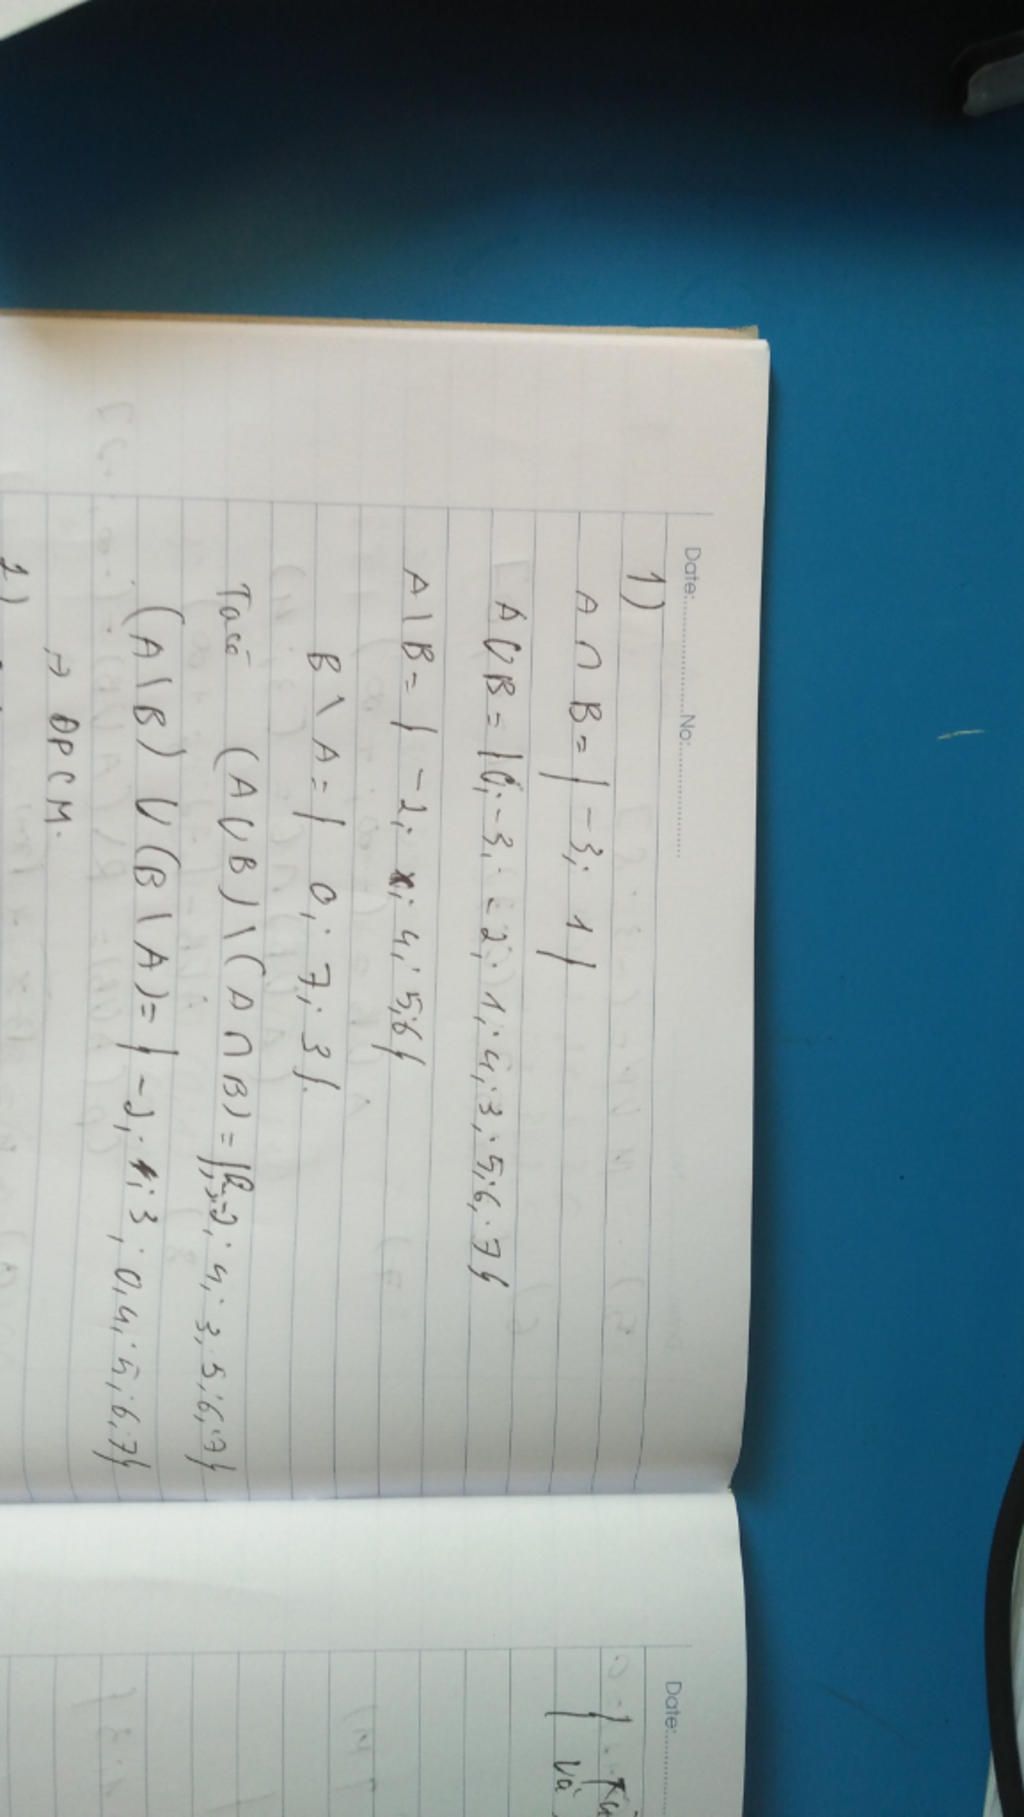 Date:.................No:.......................
1)
A ∩ B = { -3; 1 }
A ∪ B = { 0; -3; -2; 1; 4; 3; 5; 6; 7 }
A \ B = { -2; 4; 5; 6 }
B \ A = { 0; 7; 3 }.
Ta có (A ∪ B) \ (A ∩ B) = { 0; -2; 4; 3; 5; 6; 7 }
(A \ B) ∪ (B \ A) = { -2; 3; 0; 4; 5; 6; 7 }
=> ĐPCM.
Date:............
và